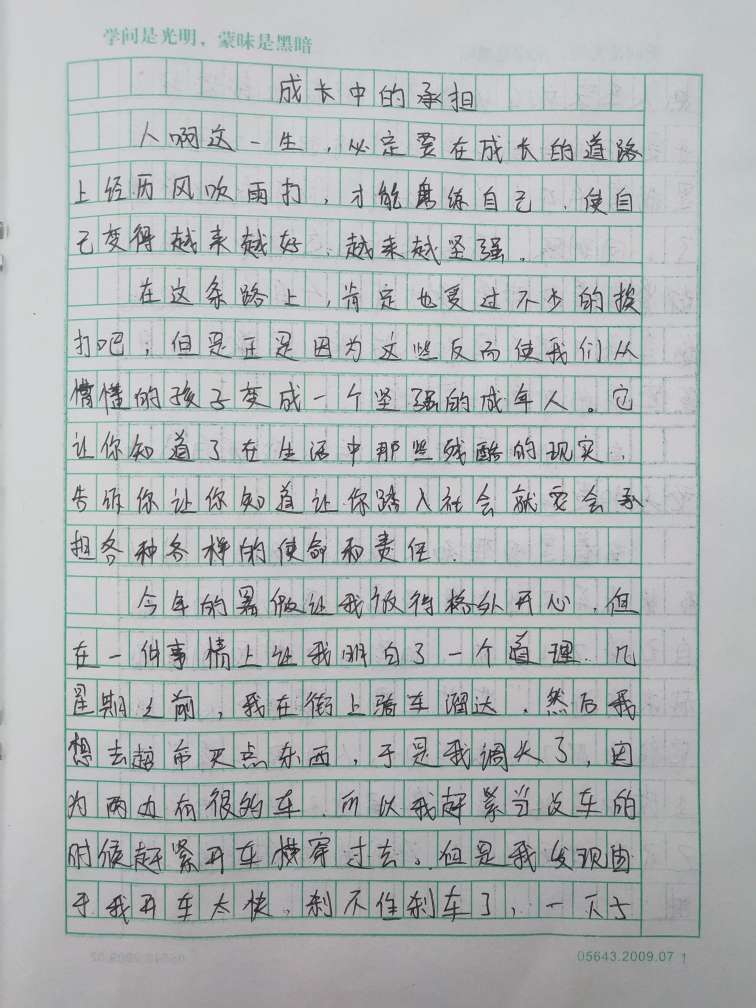 学问是光明，蒙昧是黑暗
成长中的承担
人啊这一生，必定要在成长的道路
上经历风吹雨打，才能磨练自己，使自
己变得越来越好，越来越坚强。
在这条路上，肯定也受过不少的挨
打吧，但是正是因为这些反而使我们从
懵懂的孩子变成一个坚强的成年人。它
让你知道了在生活中那些残酷的现实，
告诉你让你知道让你踏入社会就要会承
担各种各样的使命和责任.
今年的暑假让我 得格外开心，但
在一件事情上让我明白了一个道理.几
星期之前，我在街上骑车溜达，然后我
想去超市买点东西，于是我调头了，因
为两边有很多车，所以我赶紧当没车的
时候赶紧开车横穿过去。但是我发现由
于我开车太快，刹不住刹车了，一下子
05643.2009.07 1